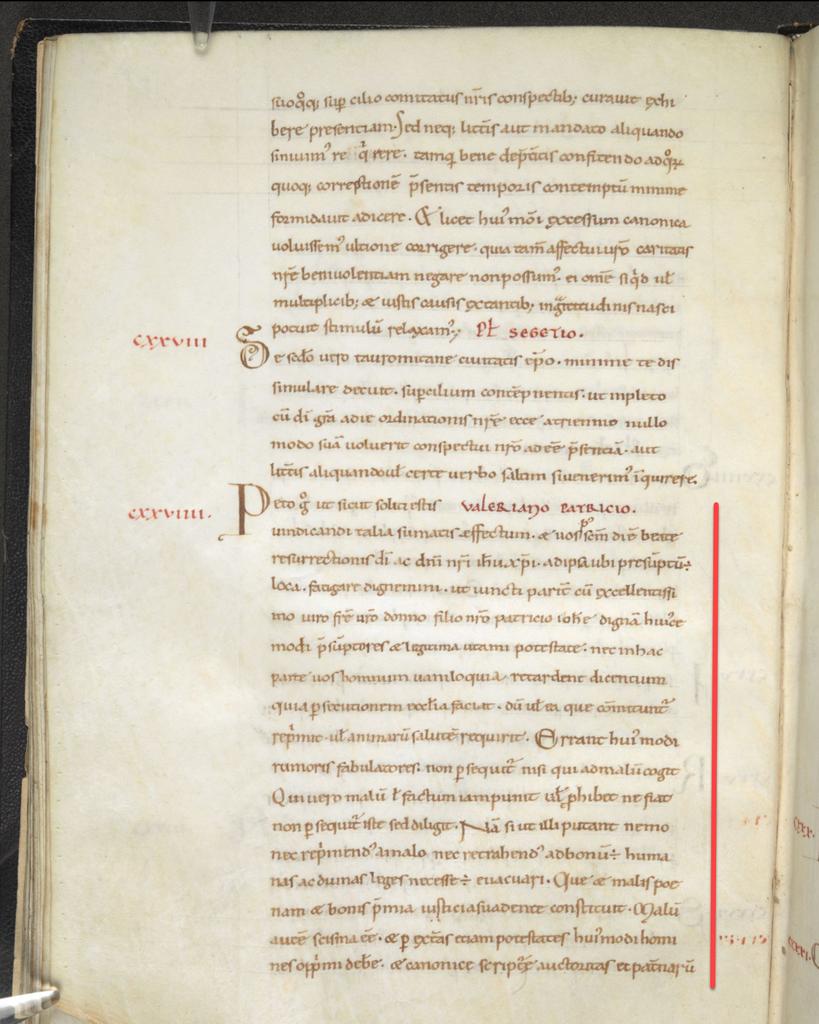 suoq; sup cilio comitatus nris conspectib; curauit exhi
bere presentiam. Sed neq; litteris aut mandato aliquando
sinuim' re qrere. tamq bene depticis confitendo adq
quoq; correptionē p̄sentis temporis contemptū minime
formidauit adicere. Et licet hui' mōi excessum canonica
voluissem' ultione corrigere. quia tam̄ affectui uro caritatis
nrē beniuolentiam negare non possum'. ei omē siqd ul
multiplicib; & iustis causis extantib; ingratitudinis nasci
potuit stimulū relaxam'; Pt segetio.
cxxviii De sedo uero tauromitane ciuitatis epō. minime te dis
simulare decuit. supcilium contēpnentis. ut inpleto
cū di grā adit ordinationis nrē ecce atriennio nullo
modo suā voluerit conspectui nrō adeē p̄sentiā. aut
littis aliquando ul certe uerbo saltim si uenerim' īquirere.
cxxviiii. Peto g ut sicut soliti estis valeriano patricio.
uindicandi talia sumatis effectum. & uos p' sem diē beate
resurrectionis di ac dni nri ihu xpi. ad ipsa ubi presūptū ÷
loca. fatigare dignemini. ut iuncti parit cū excellentissi
mo uiro fre uro domno filio nro patricio iohe dignā hui'ce
modi p̄sūptores & legitima utami potestate. nec in hac
parte uos hominum uaniloquia retardent dicentium
quia psecutionem ecclia faciat. dū ul ea que cōmitunt'
repmit. ul animarū salutē requirit. Errant hui' modi
rumoris fabulatores. non psequit' nisi qui ad malū cogit
Qui uero malū ł factum iam punit ul phibet ne fiat
non psequit' iste sed diligit. Nā si ut illi putant nemo
nec repmend' a malo nec retrahend' ad bonū ÷ huma
nas ac diuinas leges necesse ÷ euacuari. Que & malis poe
nam & bonis pmia iusticia suadente constituit. Malū
autē scisma eē. & p extas etiam potestates hui' modi homi
nes opprmi debe. & canonice scriptę auctoritas et patnarū